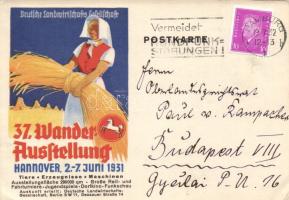 Deutsche Landwirtschafts Gesellschaft
37. Wander-
Ausstellung
HANNOVER, 2.-7. JUNI 1931
Tiere • Erzeugnisse • Maschinen
Ausstellungsfläche 290000 qm - Große Reit- und
Fahrturniere - Jugendspiele - Dorfkino - Funkschau
Auskunft erteilt: Deutsche Landwirtschafts-
Gesellschaft, Berlin SW 11, Dessauer Straße 14
POSTKARTE
Vermeidet
RUNDFUNK-
STÖRUNGEN!
Herrn
Oberlandesgerichtsrat
Paul v. Kampachen
Budapest VIII
Gyulai P. U. 16